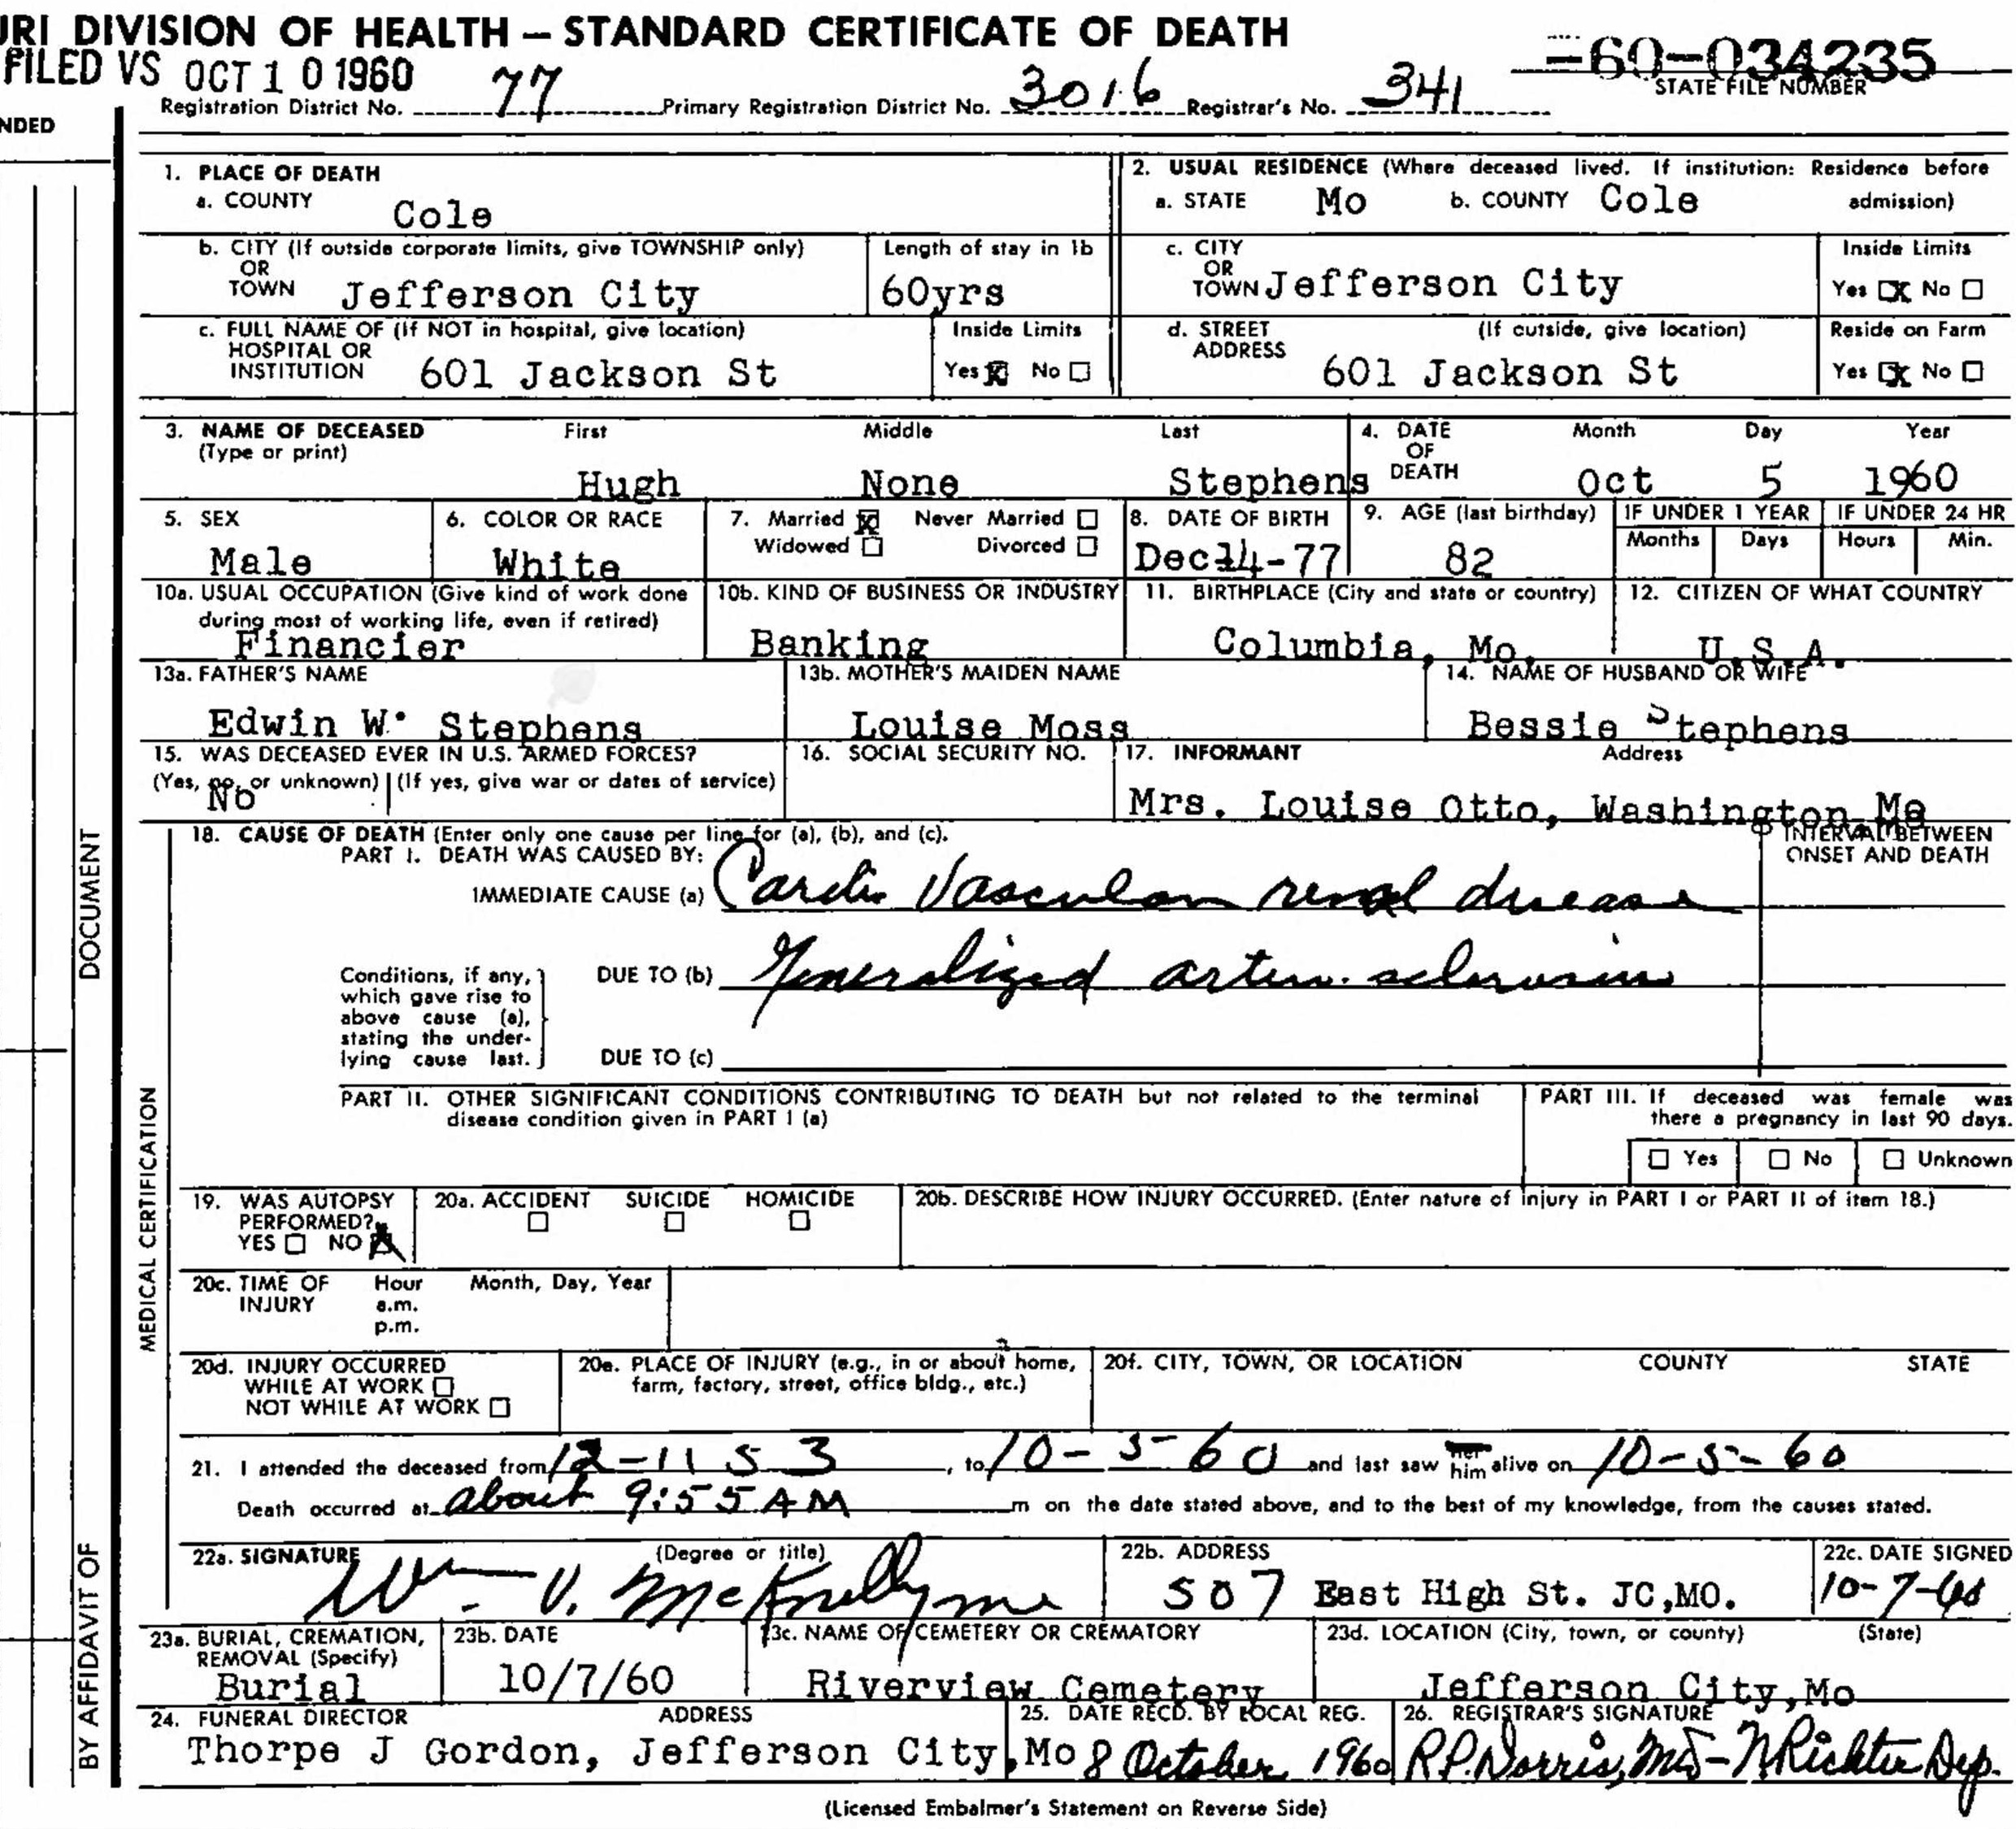 URI DIVISION OF HEALTH — STANDARD CERTIFICATE OF DEATH
FILED VS OCT 10 1960
=60-034235
STATE FILE NUMBER
Registration District No. 77 Primary Registration District No. 3016 Registrar's No. 341
NDED
1. PLACE OF DEATH
a. COUNTY Cole
2. USUAL RESIDENCE (Where deceased lived. If institution: Residence before admission)
a. STATE Mo b. COUNTY Cole
b. CITY (If outside corporate limits, give TOWNSHIP only) OR TOWN Jefferson City
Length of stay in 1b 60yrs
c. CITY OR TOWN Jefferson City
Inside Limits Yes X No
c. FULL NAME OF (If NOT in hospital, give location) HOSPITAL OR INSTITUTION 601 Jackson St
Inside Limits Yes X No
d. STREET ADDRESS (If outside, give location) 601 Jackson St
Reside on Farm Yes X No
3. NAME OF DECEASED (Type or print) First Middle Last
Hugh None Stephens
4. DATE OF DEATH Month Day Year
Oct 5 1960
5. SEX Male
6. COLOR OR RACE White
7. Married X Never Married Widowed Divorced
8. DATE OF BIRTH Dec-14-77
9. AGE (last birthday) 82
IF UNDER 1 YEAR Months Days
IF UNDER 24 HR Hours Min.
10a. USUAL OCCUPATION (Give kind of work done during most of working life, even if retired) Financier
10b. KIND OF BUSINESS OR INDUSTRY Banking
11. BIRTHPLACE (City and state or country) Columbia, Mo.
12. CITIZEN OF WHAT COUNTRY U.S.A.
13a. FATHER'S NAME Edwin W. Stephens
13b. MOTHER'S MAIDEN NAME Louise Moss
14. NAME OF HUSBAND OR WIFE Bessie Stephens
15. WAS DECEASED EVER IN U.S. ARMED FORCES? (Yes, no, or unknown) (If yes, give war or dates of service) No
16. SOCIAL SECURITY NO.
17. INFORMANT Address
Mrs. Louise Otto, Washington Mo
18. CAUSE OF DEATH (Enter only one cause per line for (a), (b), and (c).
INTERVAL BETWEEN ONSET AND DEATH
PART I. DEATH WAS CAUSED BY:
IMMEDIATE CAUSE (a) Cardio Vascular renal disease
Conditions, if any, which gave rise to above cause (a), stating the underlying cause last.
DUE TO (b) Generalized arterio-sclerosis
DUE TO (c)
PART II. OTHER SIGNIFICANT CONDITIONS CONTRIBUTING TO DEATH but not related to the terminal disease condition given in PART I (a)
PART III. If deceased was female was there a pregnancy in last 90 days.
Yes No Unknown
19. WAS AUTOPSY PERFORMED? YES NO X
20a. ACCIDENT SUICIDE HOMICIDE
20b. DESCRIBE HOW INJURY OCCURRED. (Enter nature of injury in PART I or PART II of item 18.)
20c. TIME OF INJURY Hour a.m. p.m. Month, Day, Year
20d. INJURY OCCURRED WHILE AT WORK NOT WHILE AT WORK
20e. PLACE OF INJURY (e.g., in or about home, farm, factory, street, office bldg., etc.)
20f. CITY, TOWN, OR LOCATION COUNTY STATE
21. I attended the deceased from 12-11 53, to 10-5-60 and last saw her him alive on 10-5-60
Death occurred at about 9:55 AM m on the date stated above, and to the best of my knowledge, from the causes stated.
22a. SIGNATURE (Degree or title) Wm. V. McKnelly MD
22b. ADDRESS 507 East High St. JC,MO.
22c. DATE SIGNED 10-7-60
23a. BURIAL, CREMATION, REMOVAL (Specify) Burial
23b. DATE 10/7/60
23c. NAME OF CEMETERY OR CREMATORY Riverview Cemetery
23d. LOCATION (City, town, or county) (State) Jefferson City,Mo
24. FUNERAL DIRECTOR ADDRESS
Thorpe J Gordon, Jefferson City,Mo
25. DATE RECD. BY LOCAL REG. 8 October 1960
26. REGISTRAR'S SIGNATURE R.P.Norris, MD - N Richter Dep.
(Licensed Embalmer's Statement on Reverse Side)
DOCUMENT
MEDICAL CERTIFICATION
BY AFFIDAVIT OF